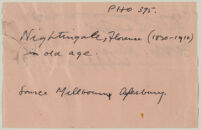 PHO 575.
Nightingale, Florence (1820-1910)
in old age.
Source Millbourne Aylesbury.